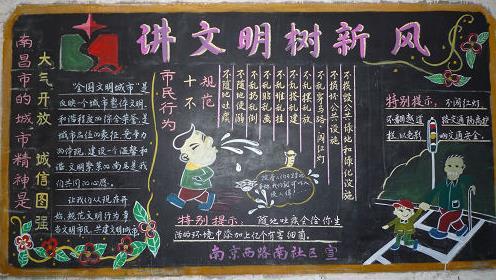 讲文明树新风
南昌市的城市精神是
大气开放 诚信图强
"全国文明城市"是
反映一个城市整体文明
和谐程度的综合荣誉,是
城市品位的象征,竞争力
的体现,建设一个温馨和
谐、文明繁荣的南昌是我
们共同的心愿。
让我们从现在开
始,规范文明行为,争
当文明市民,共建文明城市。
市民行为
十不
规范
不随地吐痰
不随地便溺
不乱扔乱倒
不乱贴乱画
不乱搭乱建
不乱停乱放
不乱穿马路、闯红灯
不损坏公共设施
不损毁公共绿地和绿化设施
特别提示:随地吐痰会给你生
活的环境中添加上亿个有害细菌。
南京西路南社区宣
特别提示:不闯红灯,
不翻越护栏
交通安全。